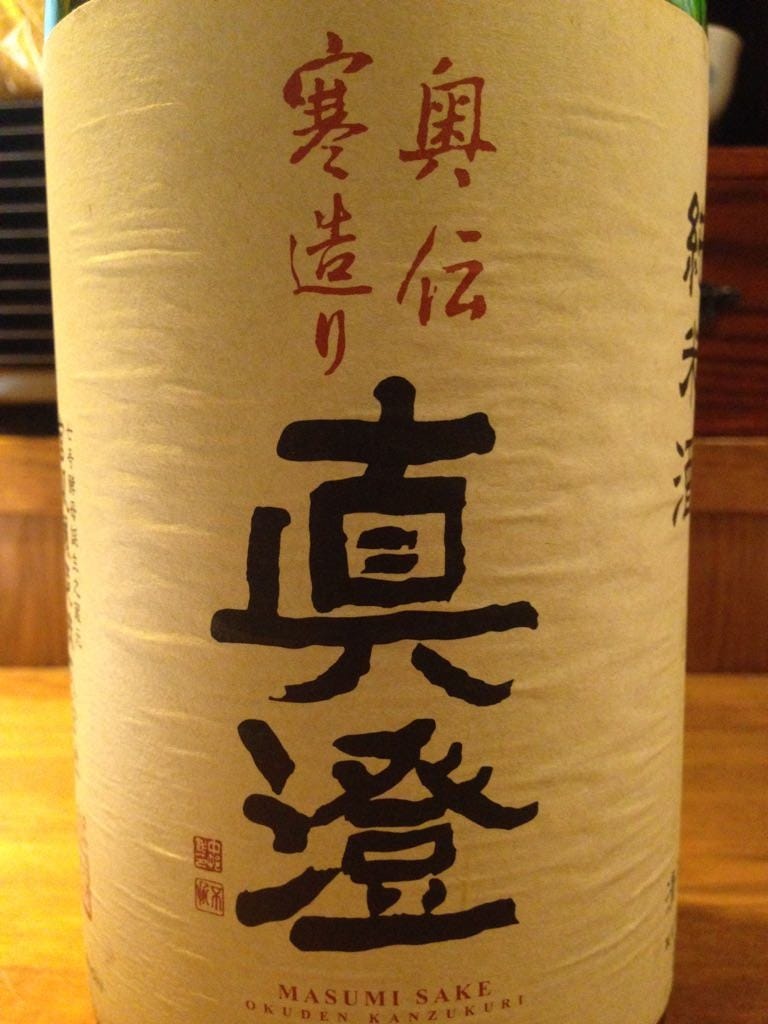 純米酒
奥伝
寒造り
真澄
MASUMI SAKE
OKUDEN KANZUKURI